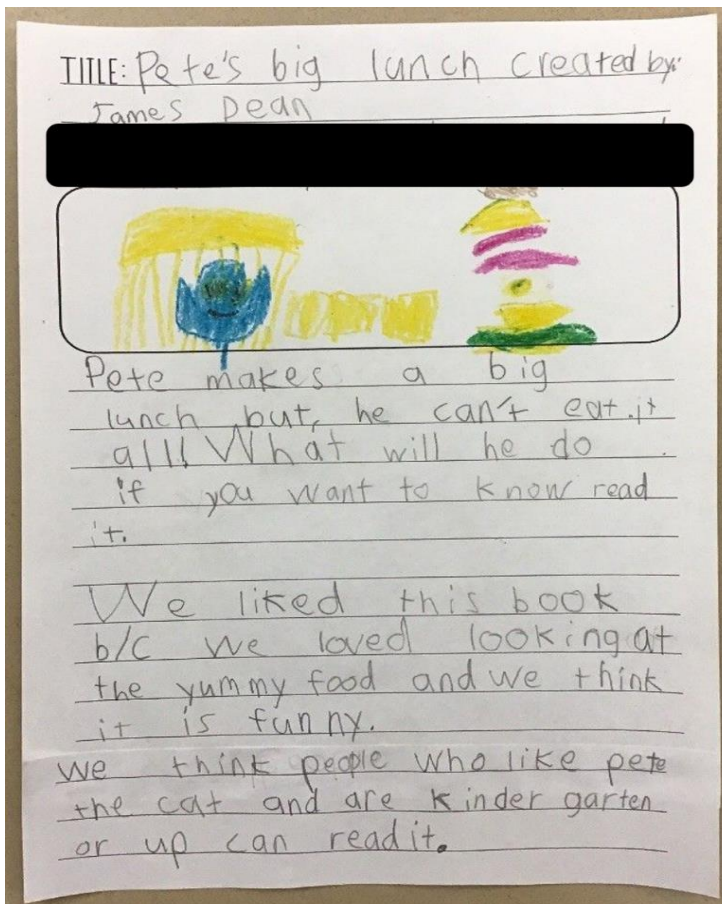 TITLE: Pete's big lunch created by:
James Dean
Pete makes a big
lunch but, he can't eat it
all! What will he do
if you want to know read
it.
We liked this book
b/c we loved looking at
the yummy food and we think
it is funny.
We think people who like pete
the cat and are kinder garten
or up can read it.